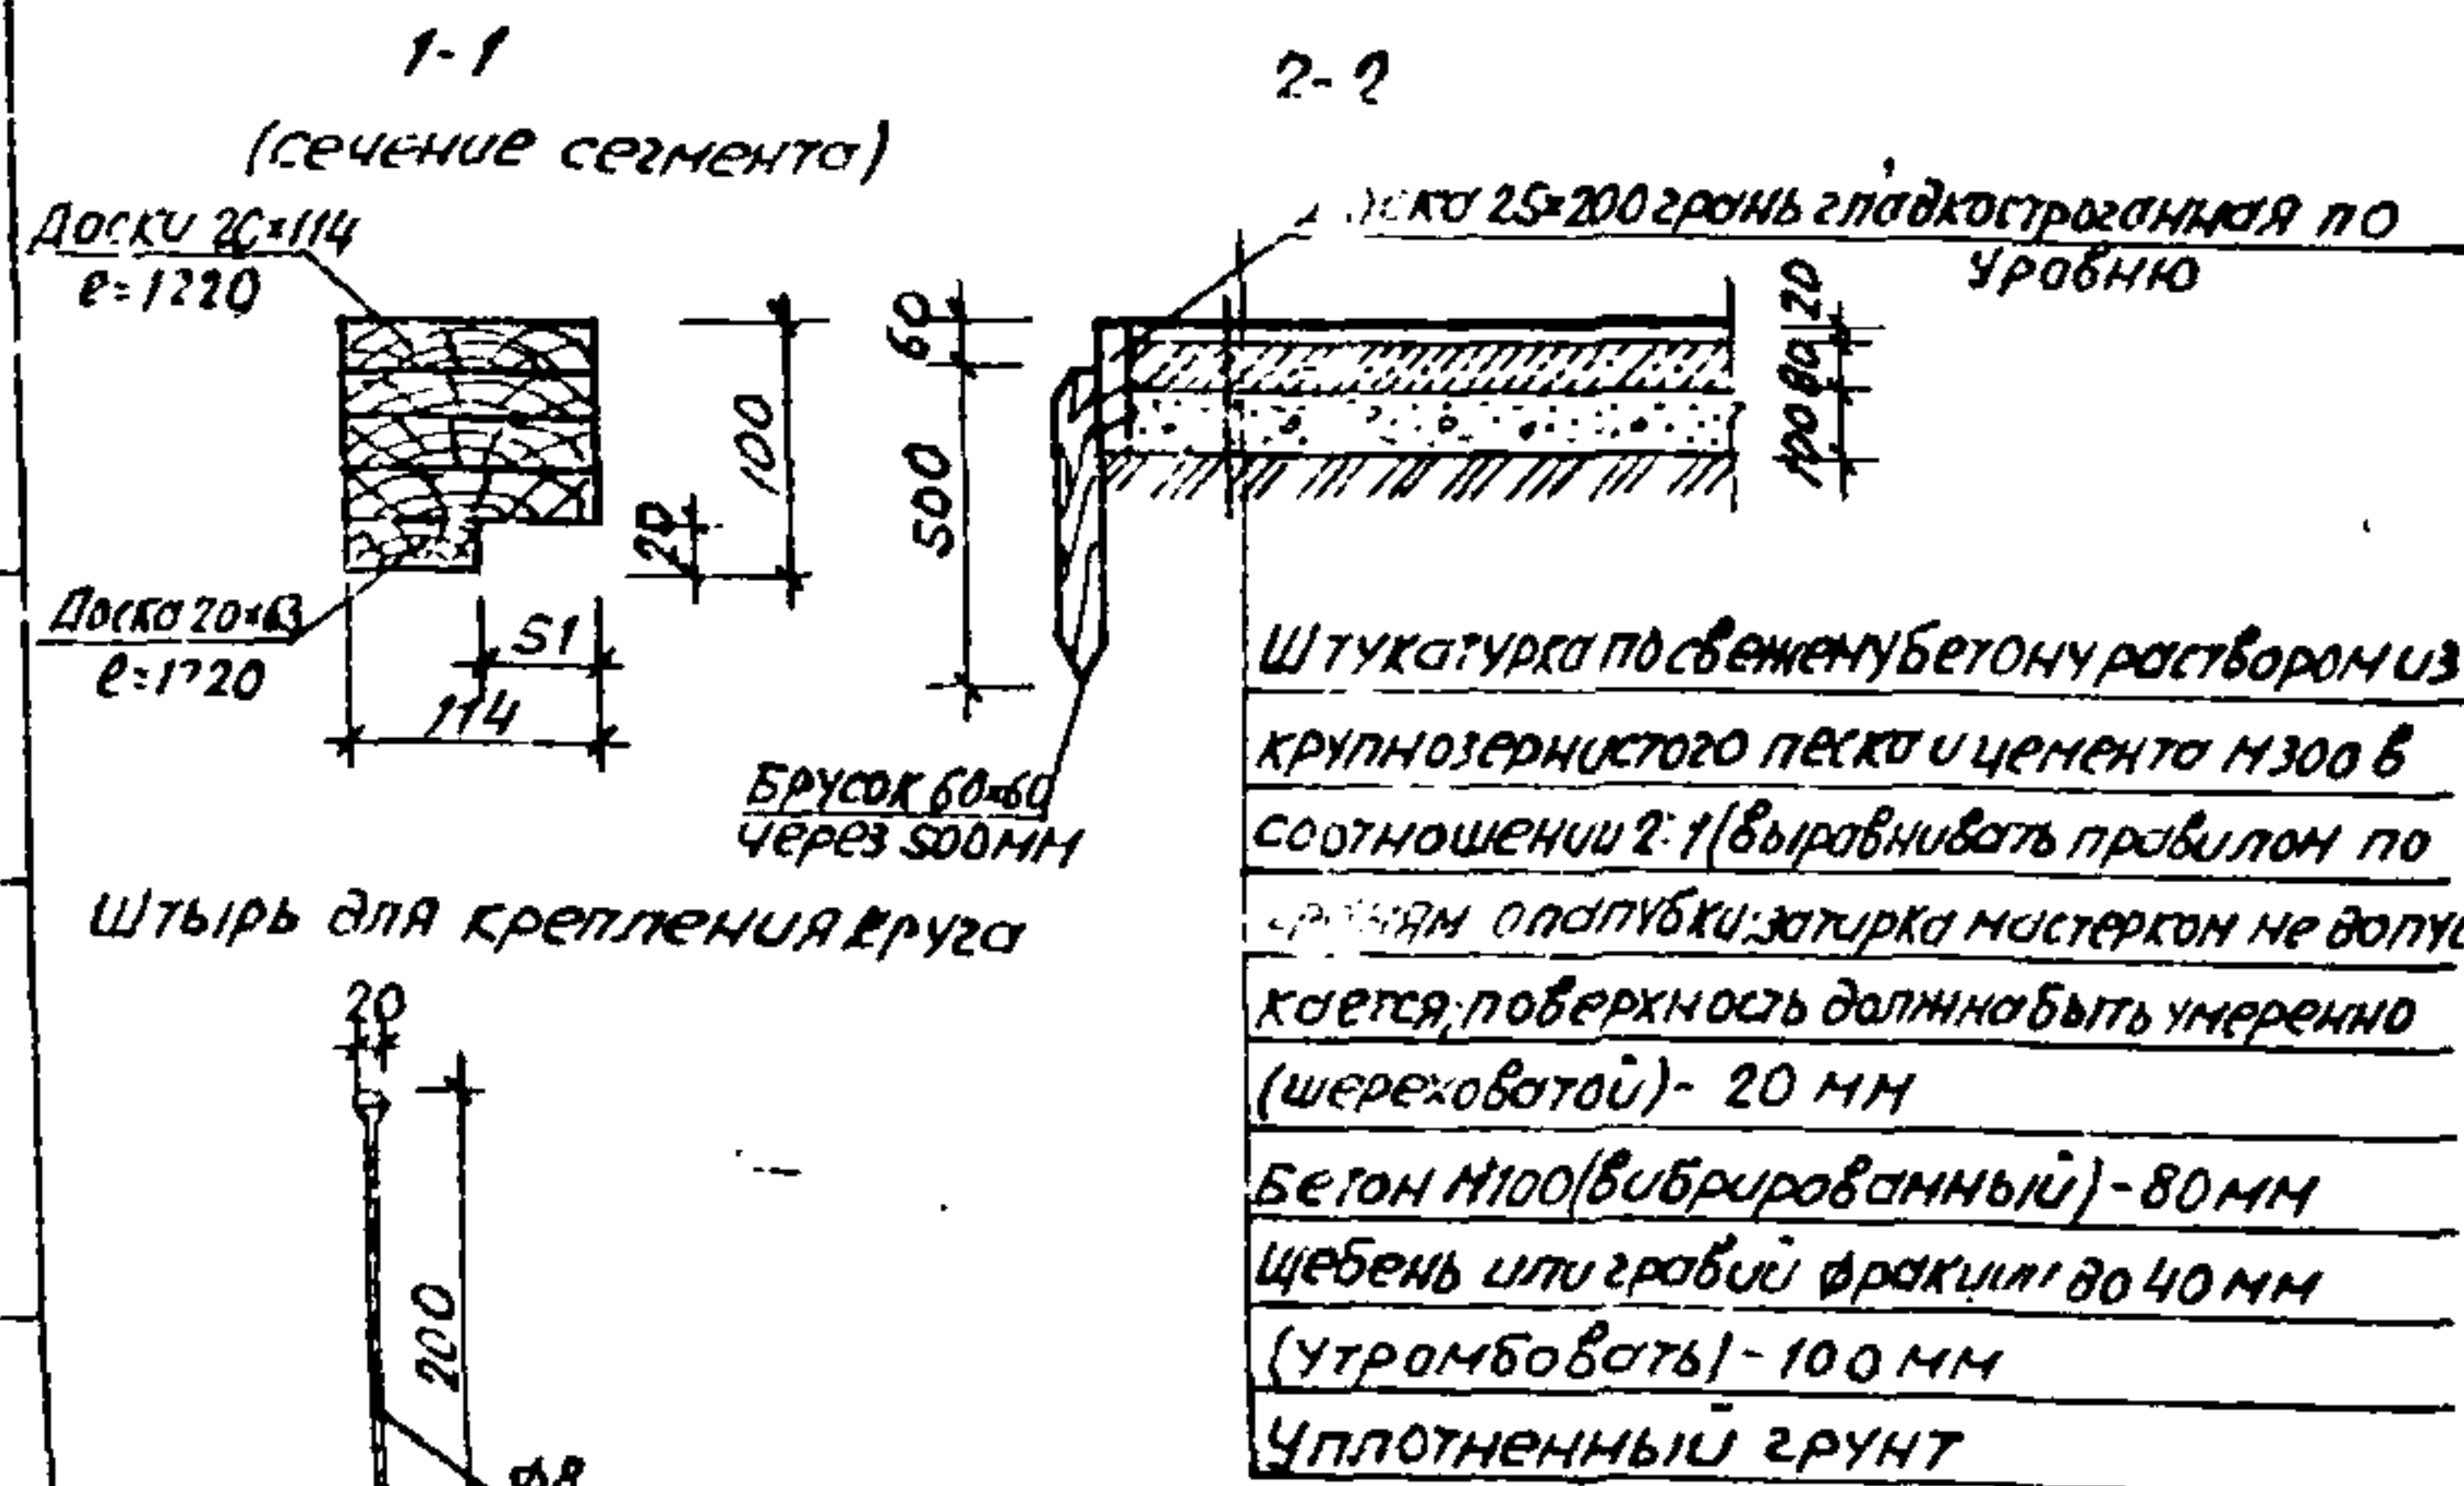 1-1
(сечение сегмента)
Доски 20×114
ℓ=1220
100
20
Доска 20×63
ℓ=1220
51
114
2-2
25×200 грань гладкостроганная по
уровню
60
500
20
80
100
Брусок 60×60
через 500мм
Штукатурка по свежему бетону раствором из
крупнозернистого песка и цемента М300 в
соотношении 2:1 (выравнивать правилом по
опалубки; затирка мастерком не допус
кается; поверхность должна быть умеренно
(шереховатой)- 20 мм
Бетон М100 (вибрированный) - 80 мм
Щебень или гравий фракции до 40 мм
(утромбовать) - 100 мм
Уплотненный грунт
Штырь для крепления круга
20
200
ф8